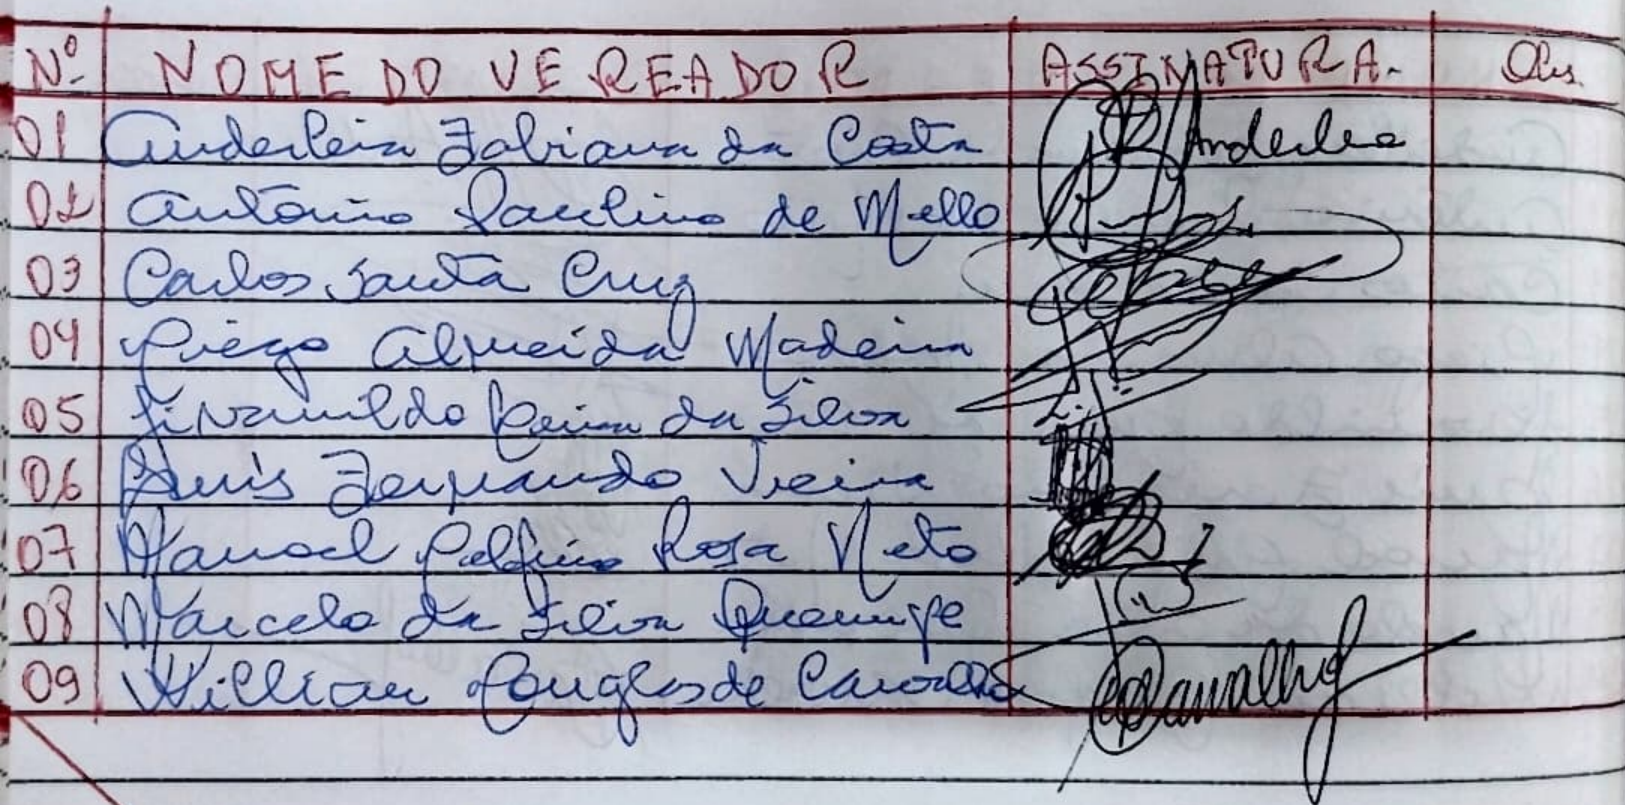 Nº NOME DO VEREADOR ASSINATURA. Obs.
01 Anderleia Fabiana da Costa Anderlea
02 Antônio Paulino de Mello
03 Carlos Santa Cruz
04 Diego Almeida Madeira
05 da Silva
06 Luis Fernando Vieira
07 Manoel Delfino Rosa Neto
08 Marcelo da Silva
09 Willian Douglas de Carvalho Carvalho